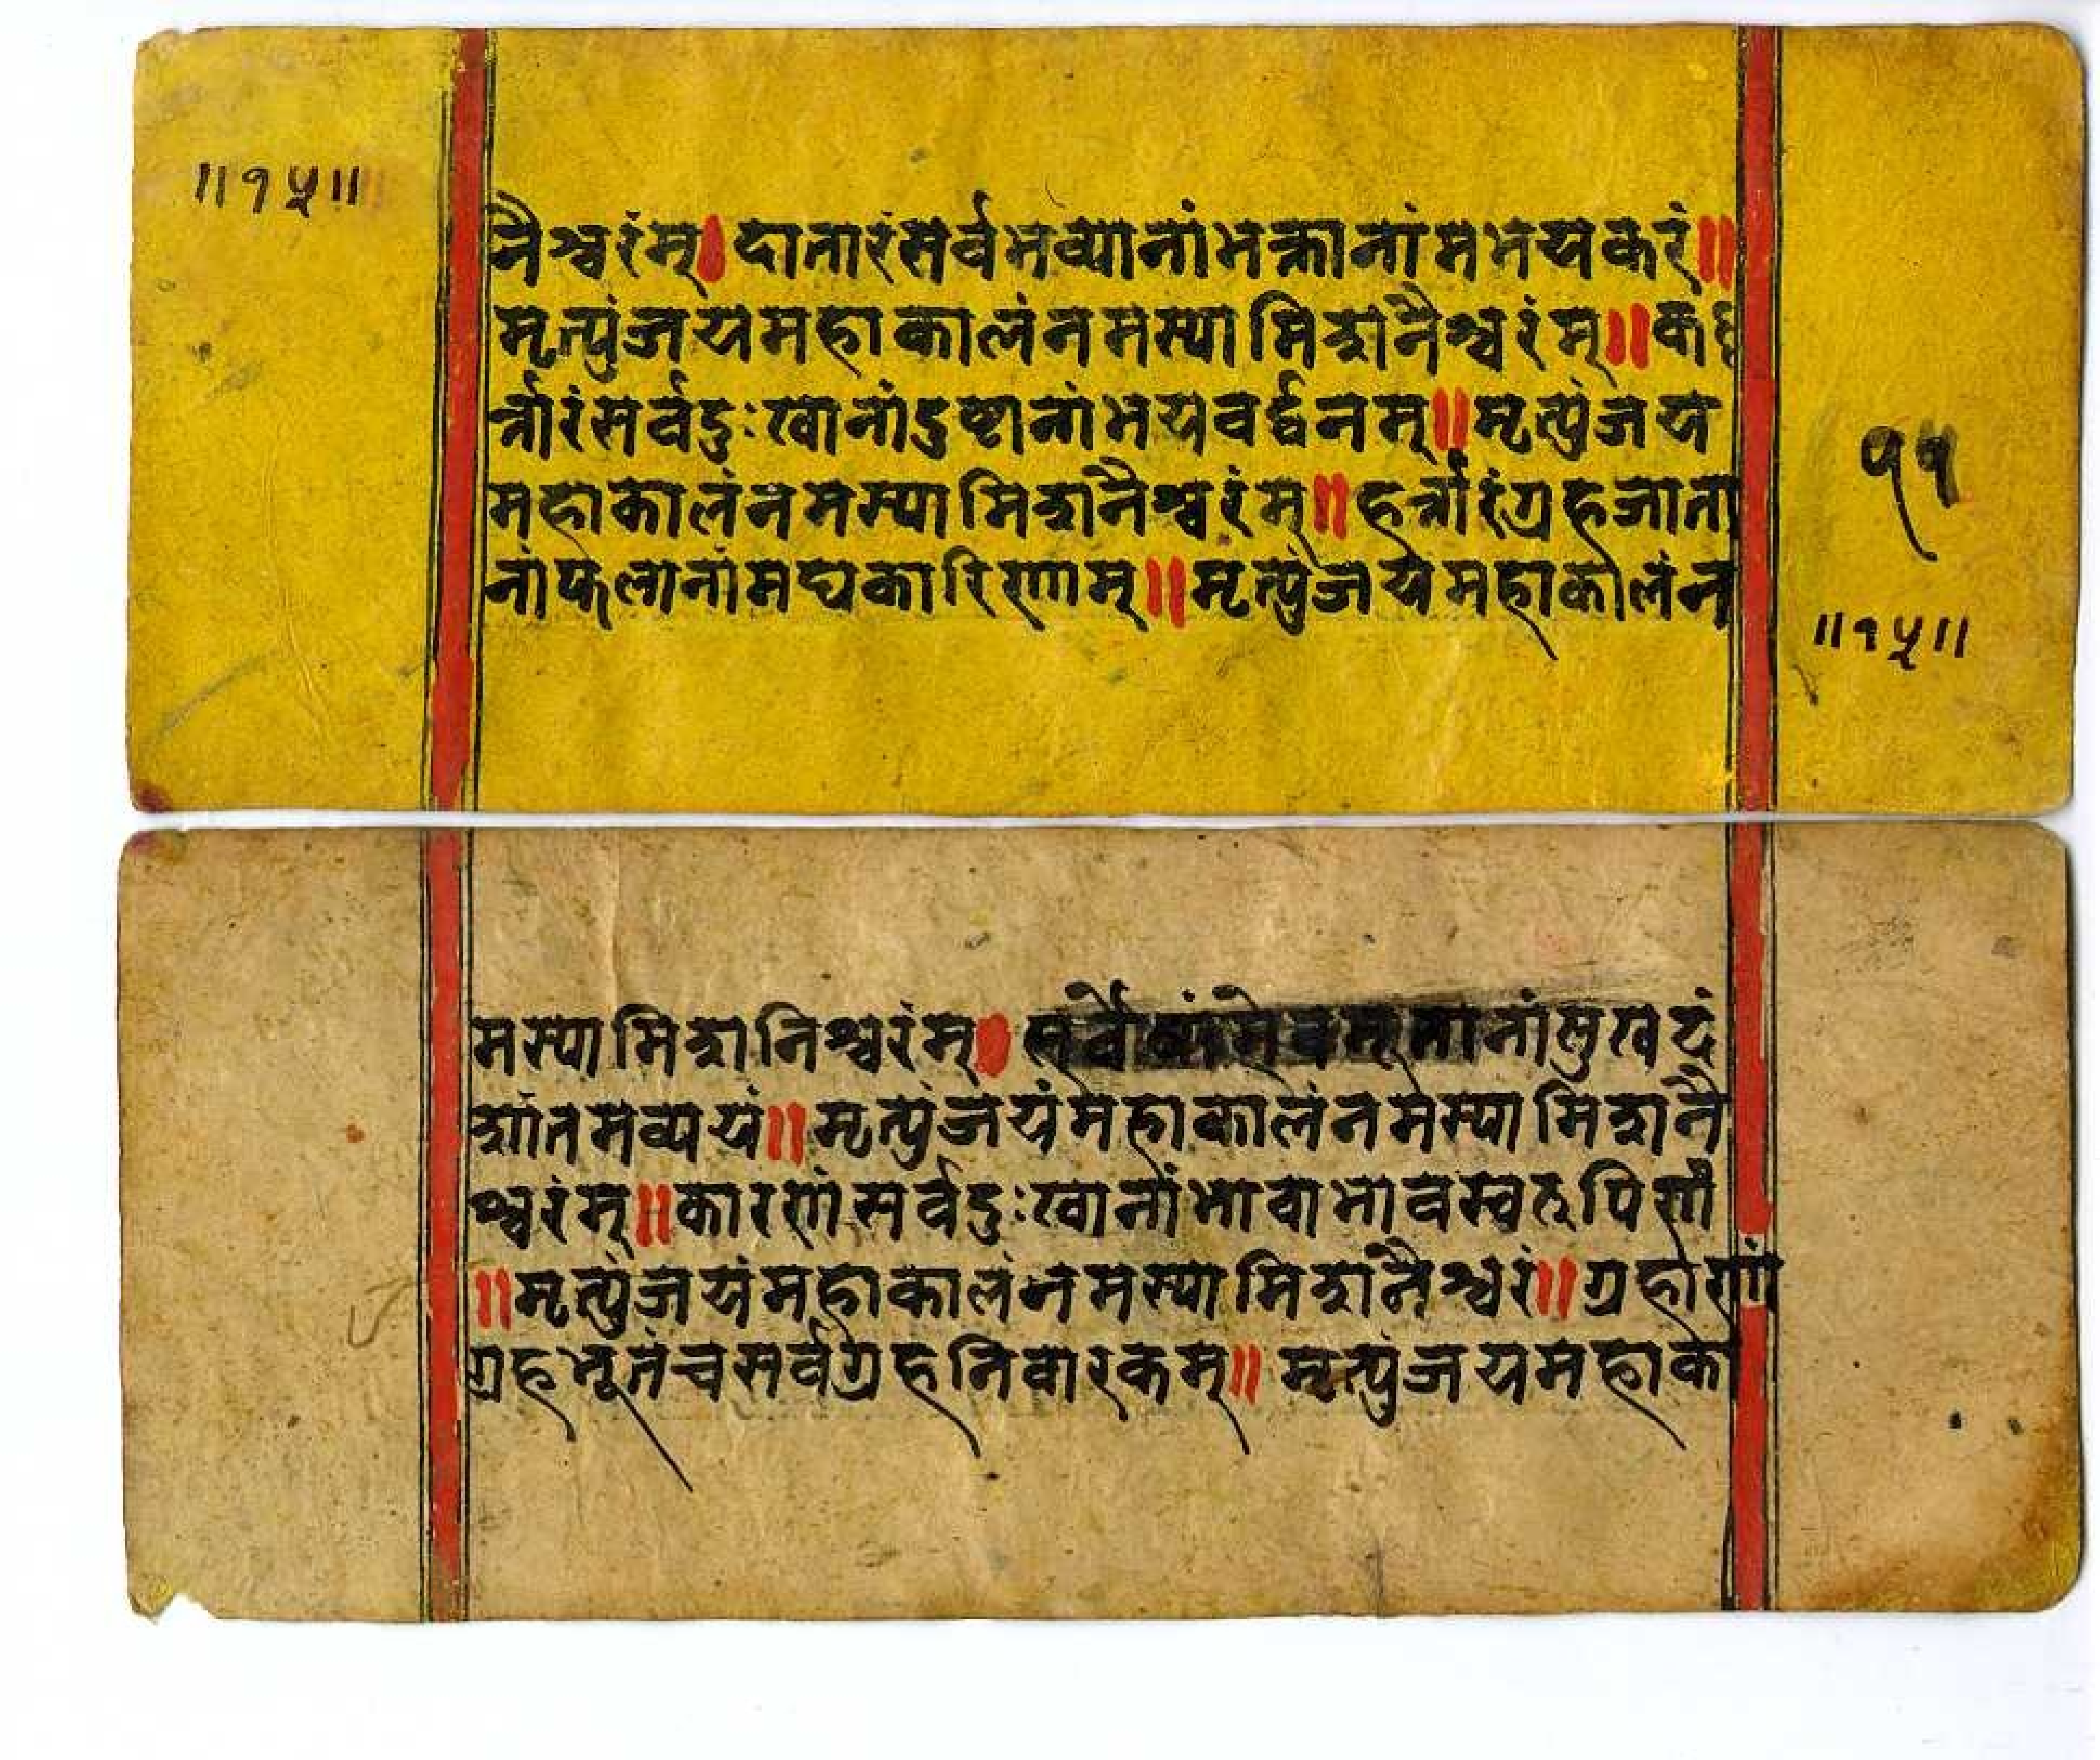 ॥१५॥
नैश्चरंम्।दातारंसर्वभव्यानांभक्तानांमभयकरं॥
मृत्युंजयंमहाकालंनमस्यामिशनैश्चरंम्॥क
र्त्तारंसर्वदुःखानांदुष्टानांभयवर्द्धनम्॥मृत्युंजय
महाकालंनमस्यामिशनैश्चरंम्॥हर्त्तारंग्रहजाता
नांफलानांमघकारिणाम्॥मृत्युंजयंमहाकालंन
११
॥१५॥
मस्यामिशनिश्चरंम्। नांसुखदं
शांतमव्ययं॥मृत्युंजयंमहाकालंनमस्यामिशनै
श्चरंम्॥कारणंसर्वदुःखानांभावाभावस्वरूपिणं
॥मृत्युंजयंमहाकालंनमस्यामिशनैश्चरं॥ग्रहाणां
ग्रहभूतंचसर्वग्रहनिवारकम्॥मृत्युंजयमहाका